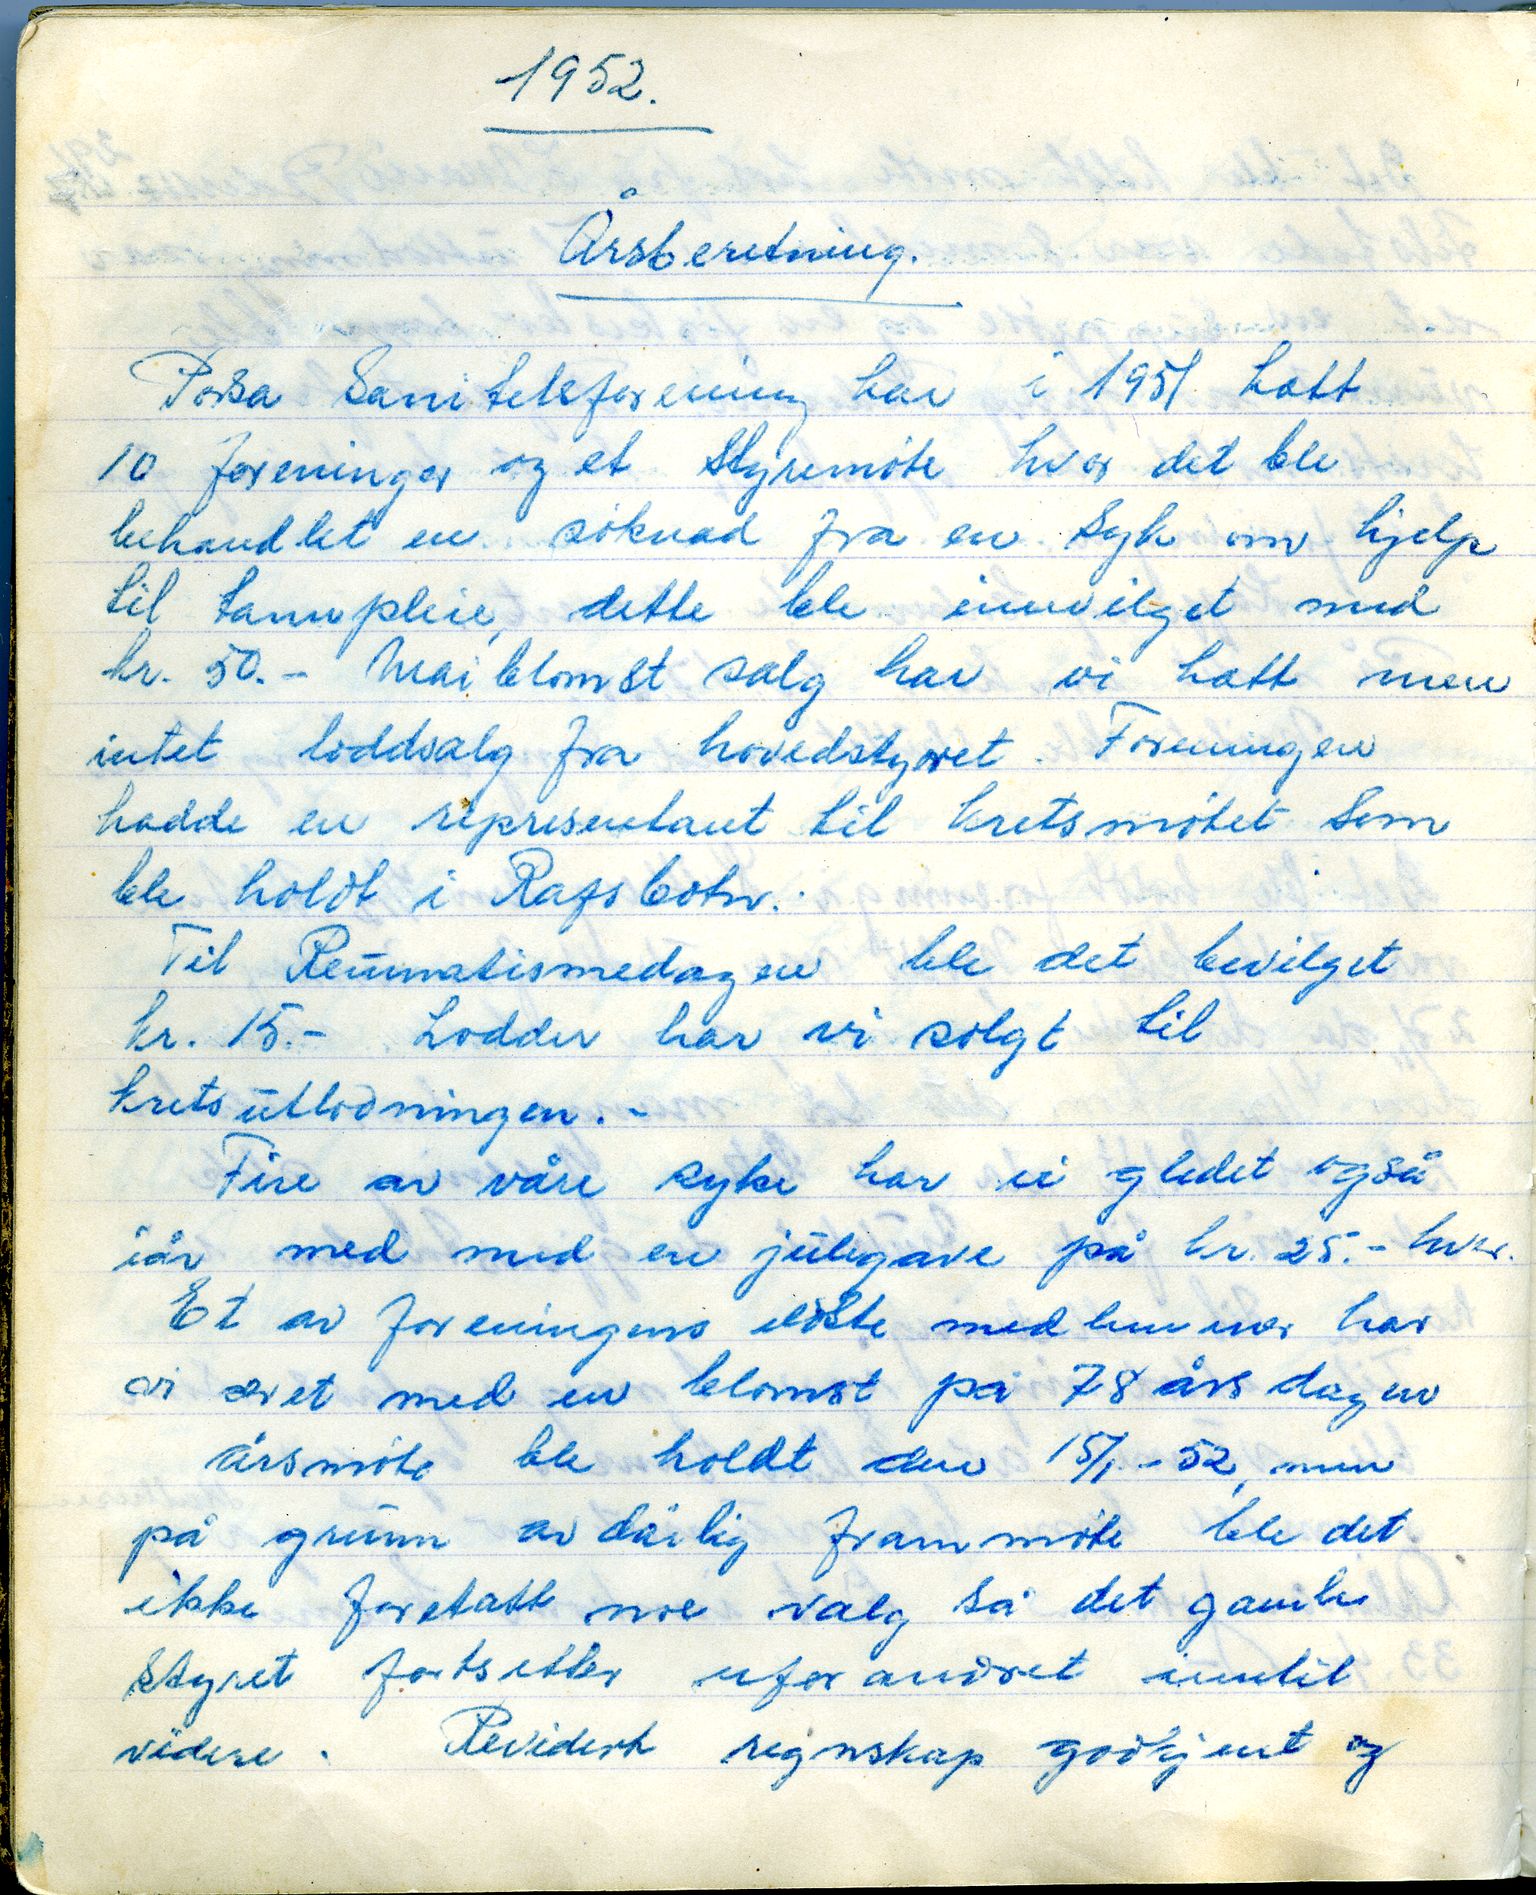 1952.
Årsberetning.
Porsa Sanitetsforening har i 1951 hatt
10 foreninger og et Styremöte hvor det ble
behandlet en söknad fra en syk om hjelp
til tannpleie, dette ble innvilget med
kr. 50.- Maiblomst salg har vi hatt men
intet loddsalg fra hovedstyret. Foreningen
hadde en representant til kretsmötet som
ble holdt i Rafsbotn.
Til Reumatismedagen ble det bevilget
kr. 15.- Lodder har vi solgt til
kretsutlodningen.-
Fire av våre syke har vi gledet også
iår med med en julegave på kr. 25.- hver.
Et av foreningens eldste medlemmer har
vi æret med en blomst på 78 års dagen
årsmöte ble holdt den 15/1-52, men
på grunn av dårlig frammöte ble det
ikke foretatt noe valg så det gamle
styret fortsetter uforandret inntil
videre. Revidert regnskap godkjent og